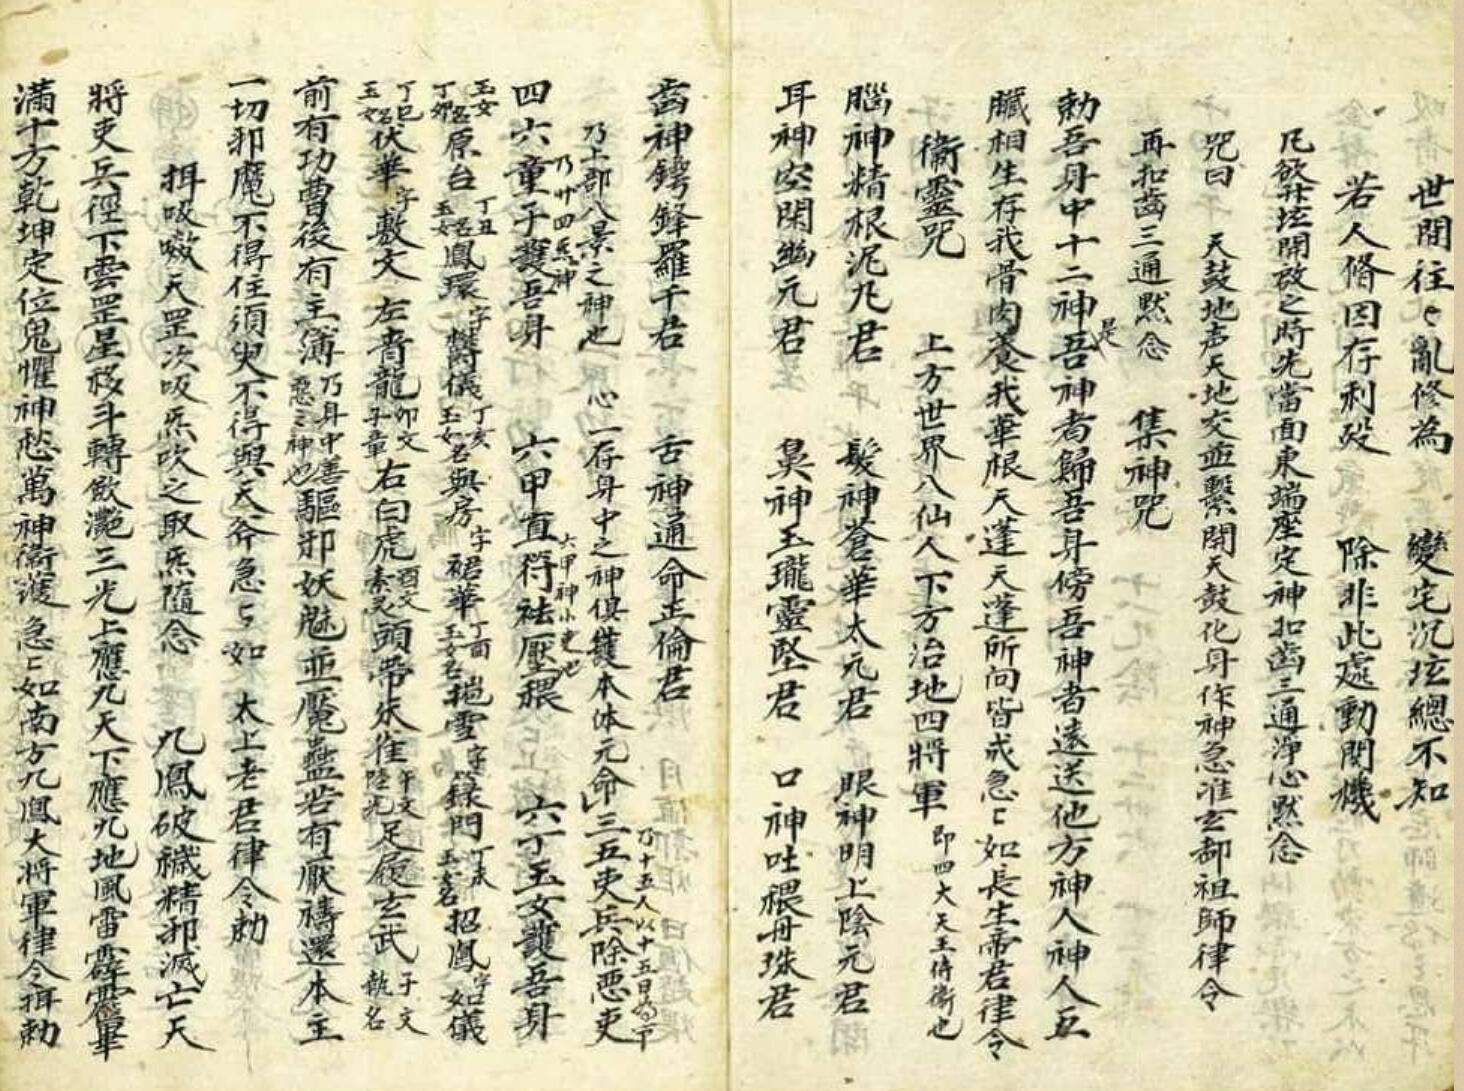 世間往々亂修為　變宅沉坛總不知
若人脩因存利殁　除非此處動関機
凡欲升坛開啟之時先當面東端座定神扣齒三通淨心默念
咒曰　天鼓地声天地交並繫開天鼓化身作神急准玄都祖師律令
再扣齒三通默念　集神咒
勅吾身中十二神是吾神者歸吾身傍吾神者遠送他方神人神人五
臟相生存我骨肉養我華根天蓬天蓬所向皆戒急々如長生帝君律令
衛靈咒　上方世界八仙人下方治地四將軍即四大天王侍衛也
腦神精根泥丸君　髮神蒼華太元君　眼神明上陰元君
耳神空閑幽元君　鼻神玉瓏靈堅君　口神吐䅸毋珠君
齒神鍔鋒羅千君　舌神通命正倫君
乃上部八景之神也　心一存身中之神俱䕶本体元命三五吏兵除惡吏乃十五人以十五日為一节
四六童子乃廿四炁神護吾身　六甲直符六甲神小吏也袪壓䅸　六丁玉女護吾身
丁卯玉女名原台丁丑玉女名鳳環字欝儀丁亥玉女名與房字裙華丁酉玉女名搃雲字錄門丁未玉女名招鳳字如儀
丁巳玉女名伏華字敷文左青龍卯文子章右白虎酉文素文頭帶朱雀午文陵光足履玄武子文執名
前有功曹後有主簿乃身中善惡之神也驅邪妖魅並魘蠱若有厭禱還本主
一切邪魔不得住須臾不得與天爷急々如　太上老君律令勅
揖吸噉天罡次吸炁吹之取炁隨念　九鳳破穢精邪滅亡天
將吏兵徑下雲罡星移斗轉飲灔三光上應九天下應九地風雷霹靂畢
滿十方乾坤定位鬼懼神愁萬神衛護急々如南方九鳳大将軍律令揖勅